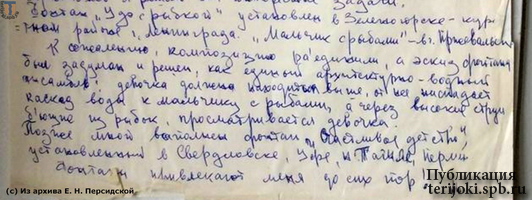 задачи.
Фонтан "Удо с рыбкой" установлен в Зеленогорске - курорт
ном районе Ленинграда. "Мальчик с рыбами" - в г. Приозерске
К сожалению, композицию разъединили, а эскиз фонтана
был задуман и решен, как единый архитектурно-водный
ансамбль: девочка должна находиться выше, от нее ниспадает
каскад воды к мальчику с рыбами, а через высокие струи
бьющие из рыбок, просматривается девочка.
Позже мной выполнен фонтан "Счастливое детство",
установленный в Свердловске, Уфе, Перми
Фонтаны привлекают меня до сих пор
(c) Из архива Е. Н. Персидской
Публикация
terijoki.spb.ru